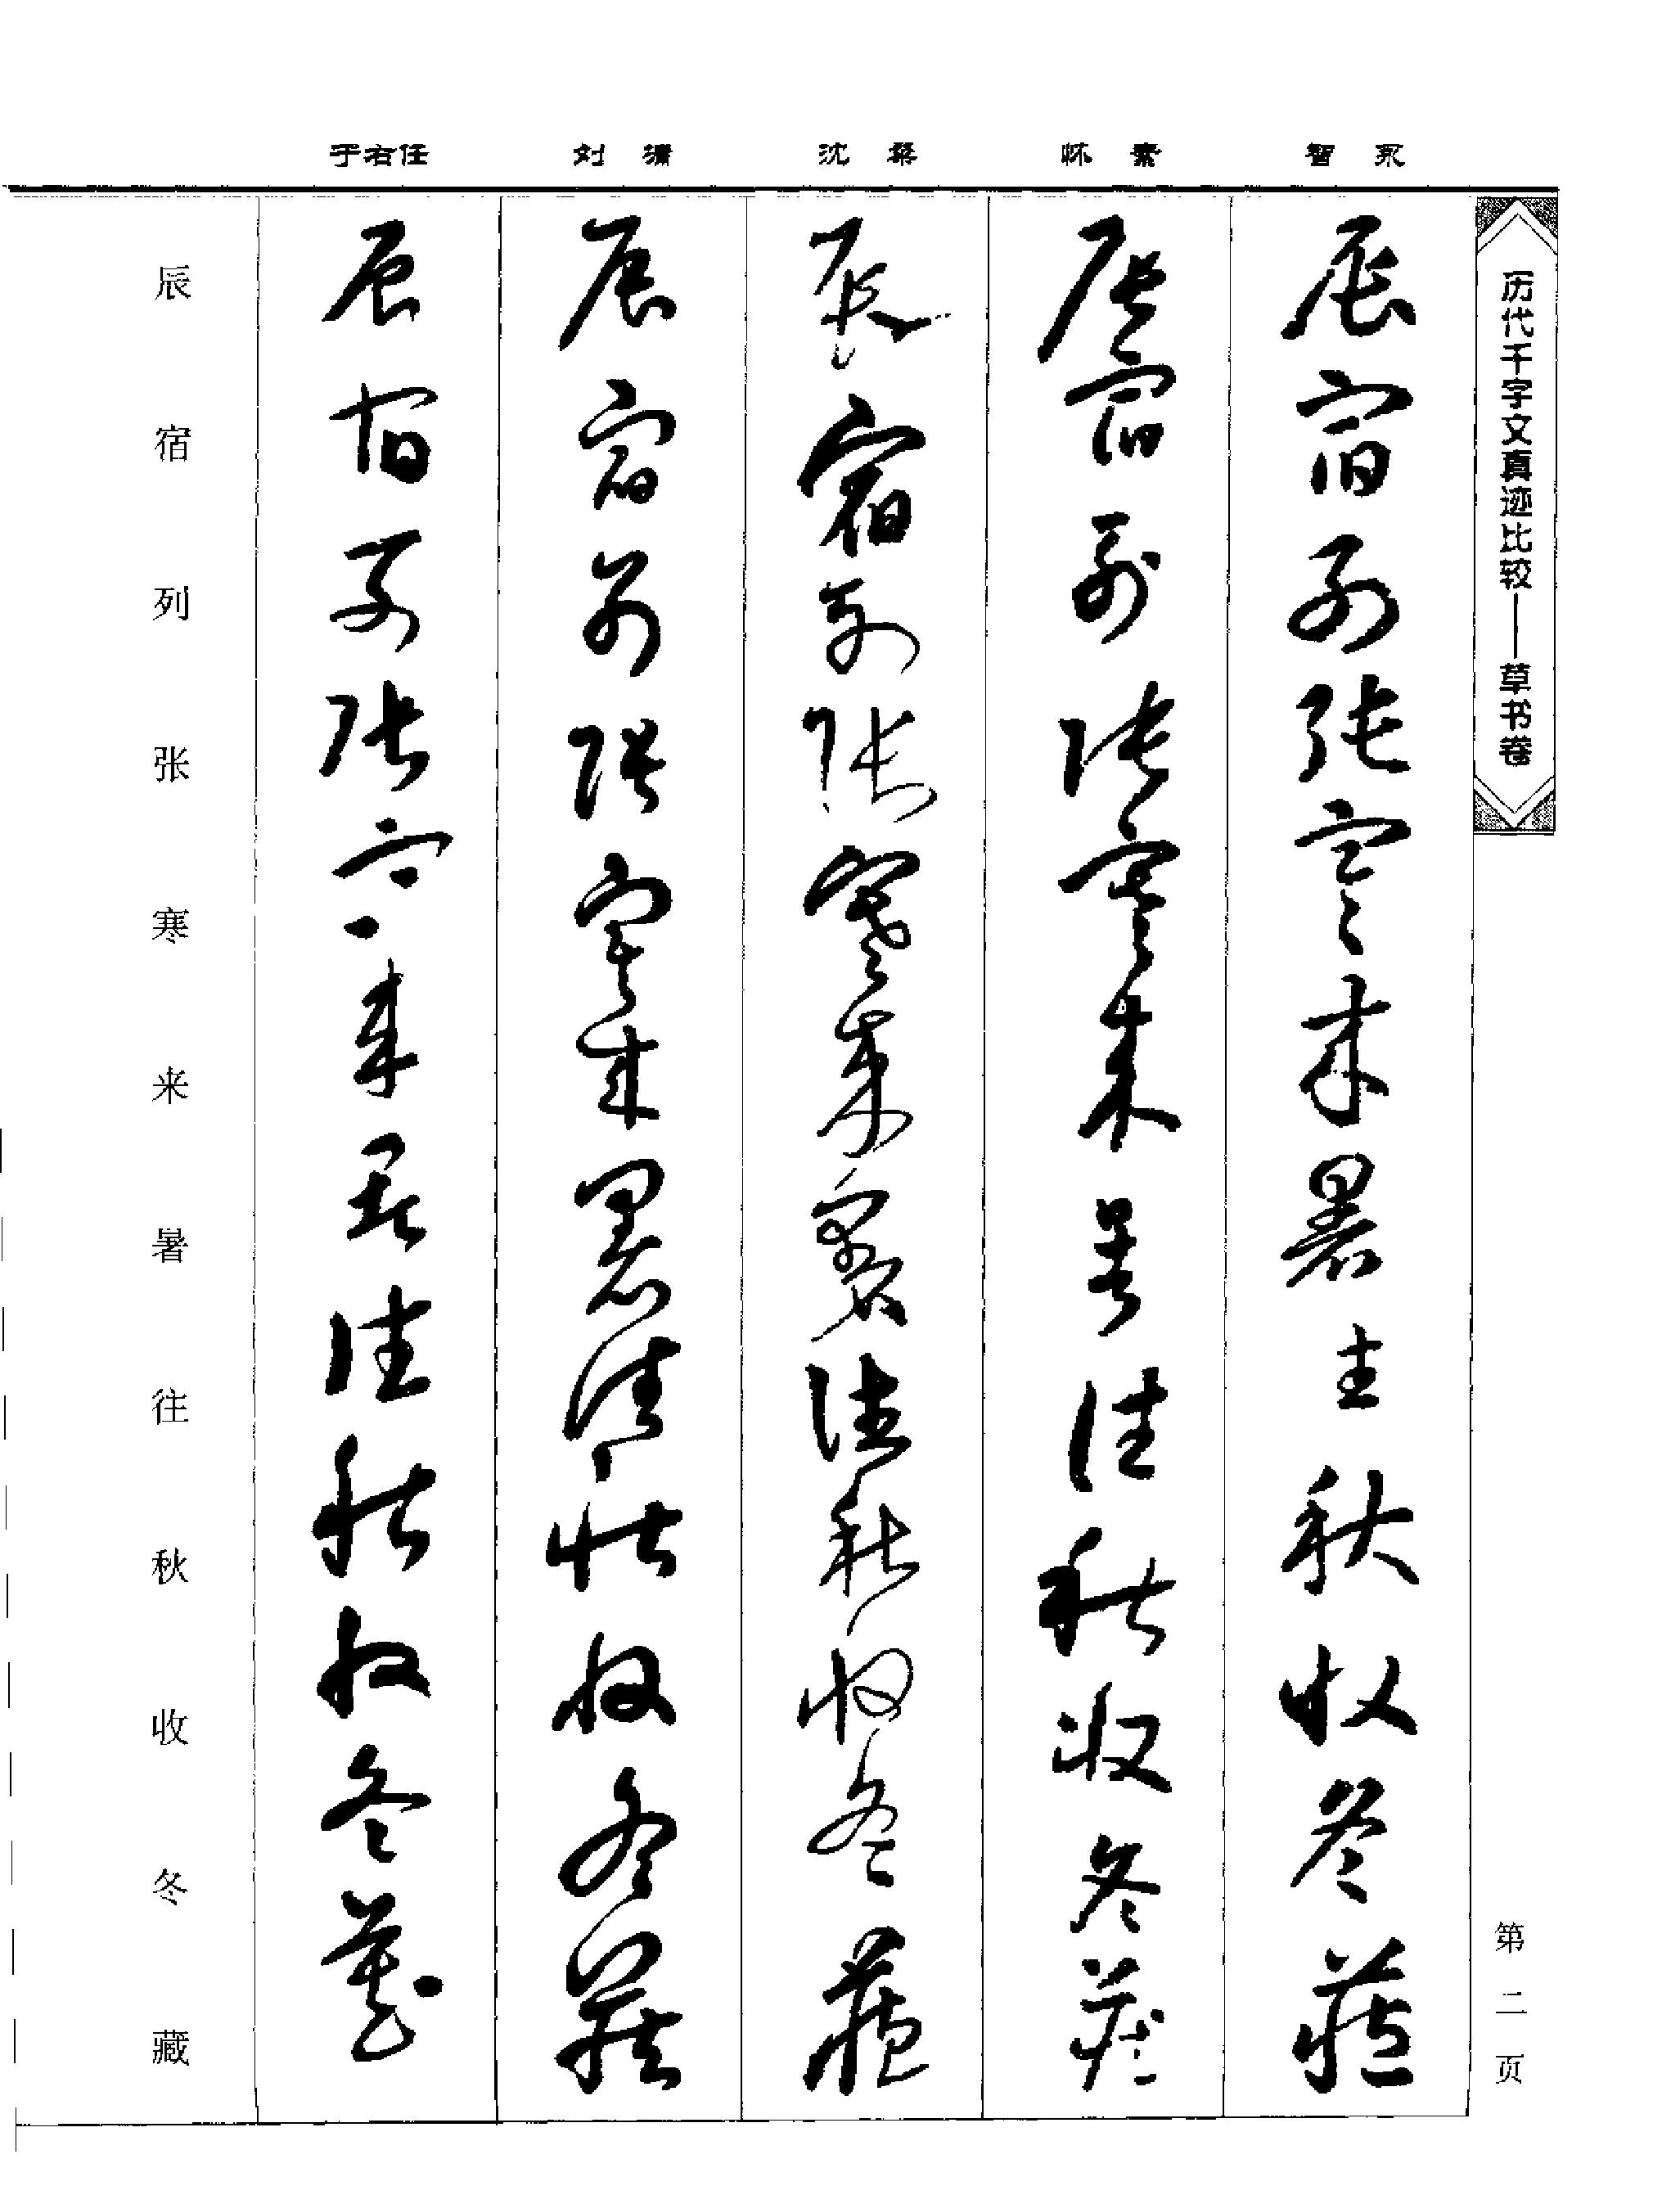 历代千字文真迹比较——草书卷
第二页
智永
怀素
沈粲
刘漪
于右任
辰宿列张寒来暑往秋收冬藏
辰宿列张寒来暑往秋收冬藏
辰宿列张寒来暑往秋收冬藏
辰宿列张寒来暑往秋收冬藏
辰宿列张寒来暑往秋收冬藏
辰宿列张寒来暑往秋收冬藏